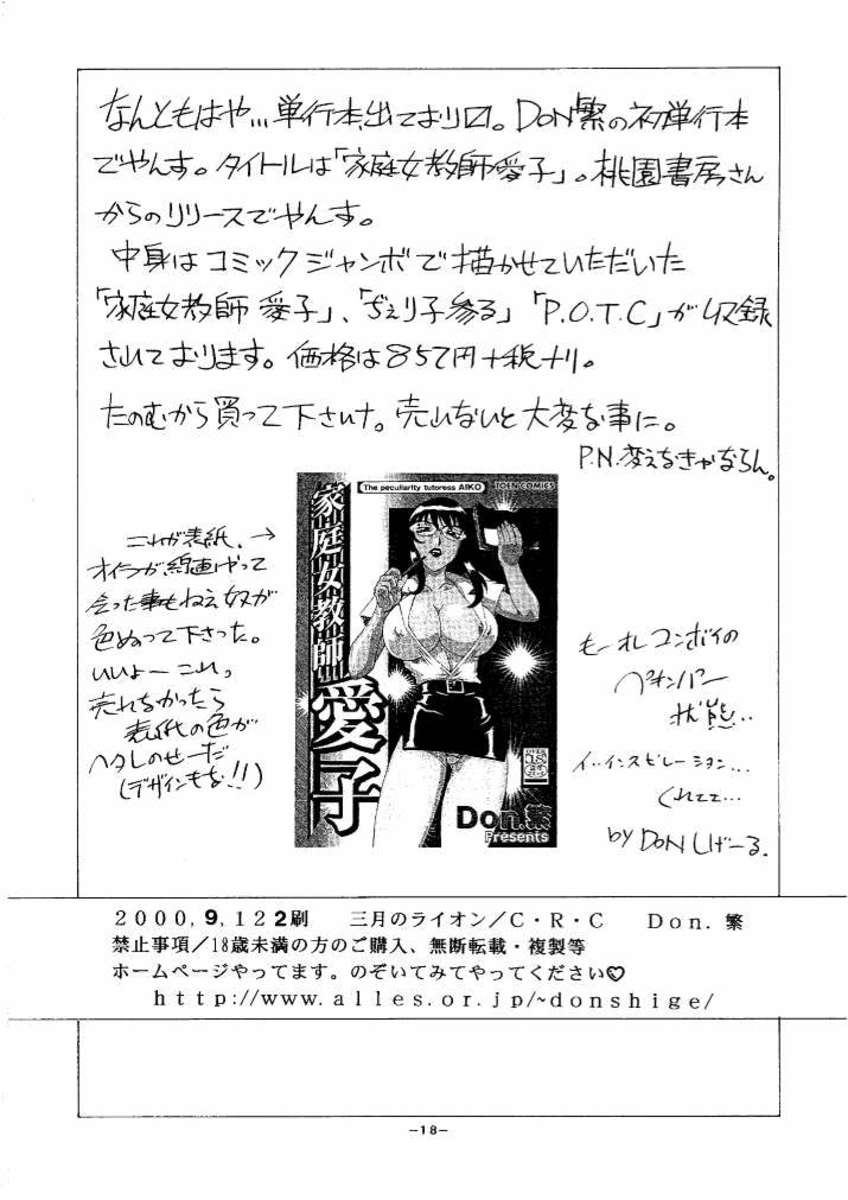 なんともはや…単行本出ております。DON繁の初単行本
でやんす。タイトルは「家庭女教師愛子」。桃園書房さん
からのリリースでやんす。
中身はコミックジャンボで描かせていただいた
「家庭女教師 愛子」、「ぢぇり子参る」「P.O.T.C」が収録
されております。価格は857円+税ナリ。
たのむから買って下さいナ。売れないと大変な事に。
P.N.変えなきゃならん。
The peculiarity tutoress AIKO
TOEN COMICS
家庭女教師
愛子
Don.繁
Presents
これが表紙。→
オイラが線画でやって
会った事もねえ奴が
色ぬって下さった。
いいよーこれっ
売れなかったら
表紙の色が
ヘタレのせーだ
(デザインもな!!)
もーオレコンボイの
ペキンパー
状態…
イ…インスピレーション…
くれェェ…
by DON しげーる.
2000,9,12 2刷 三月のライオン/C・R・C Don.繁
禁止事項/18歳未満の方のご購入、無断転載・複製等
ホームページやってます。のぞいてみてやってください♡
http://www.alles.or.jp/~donshige/
-18-